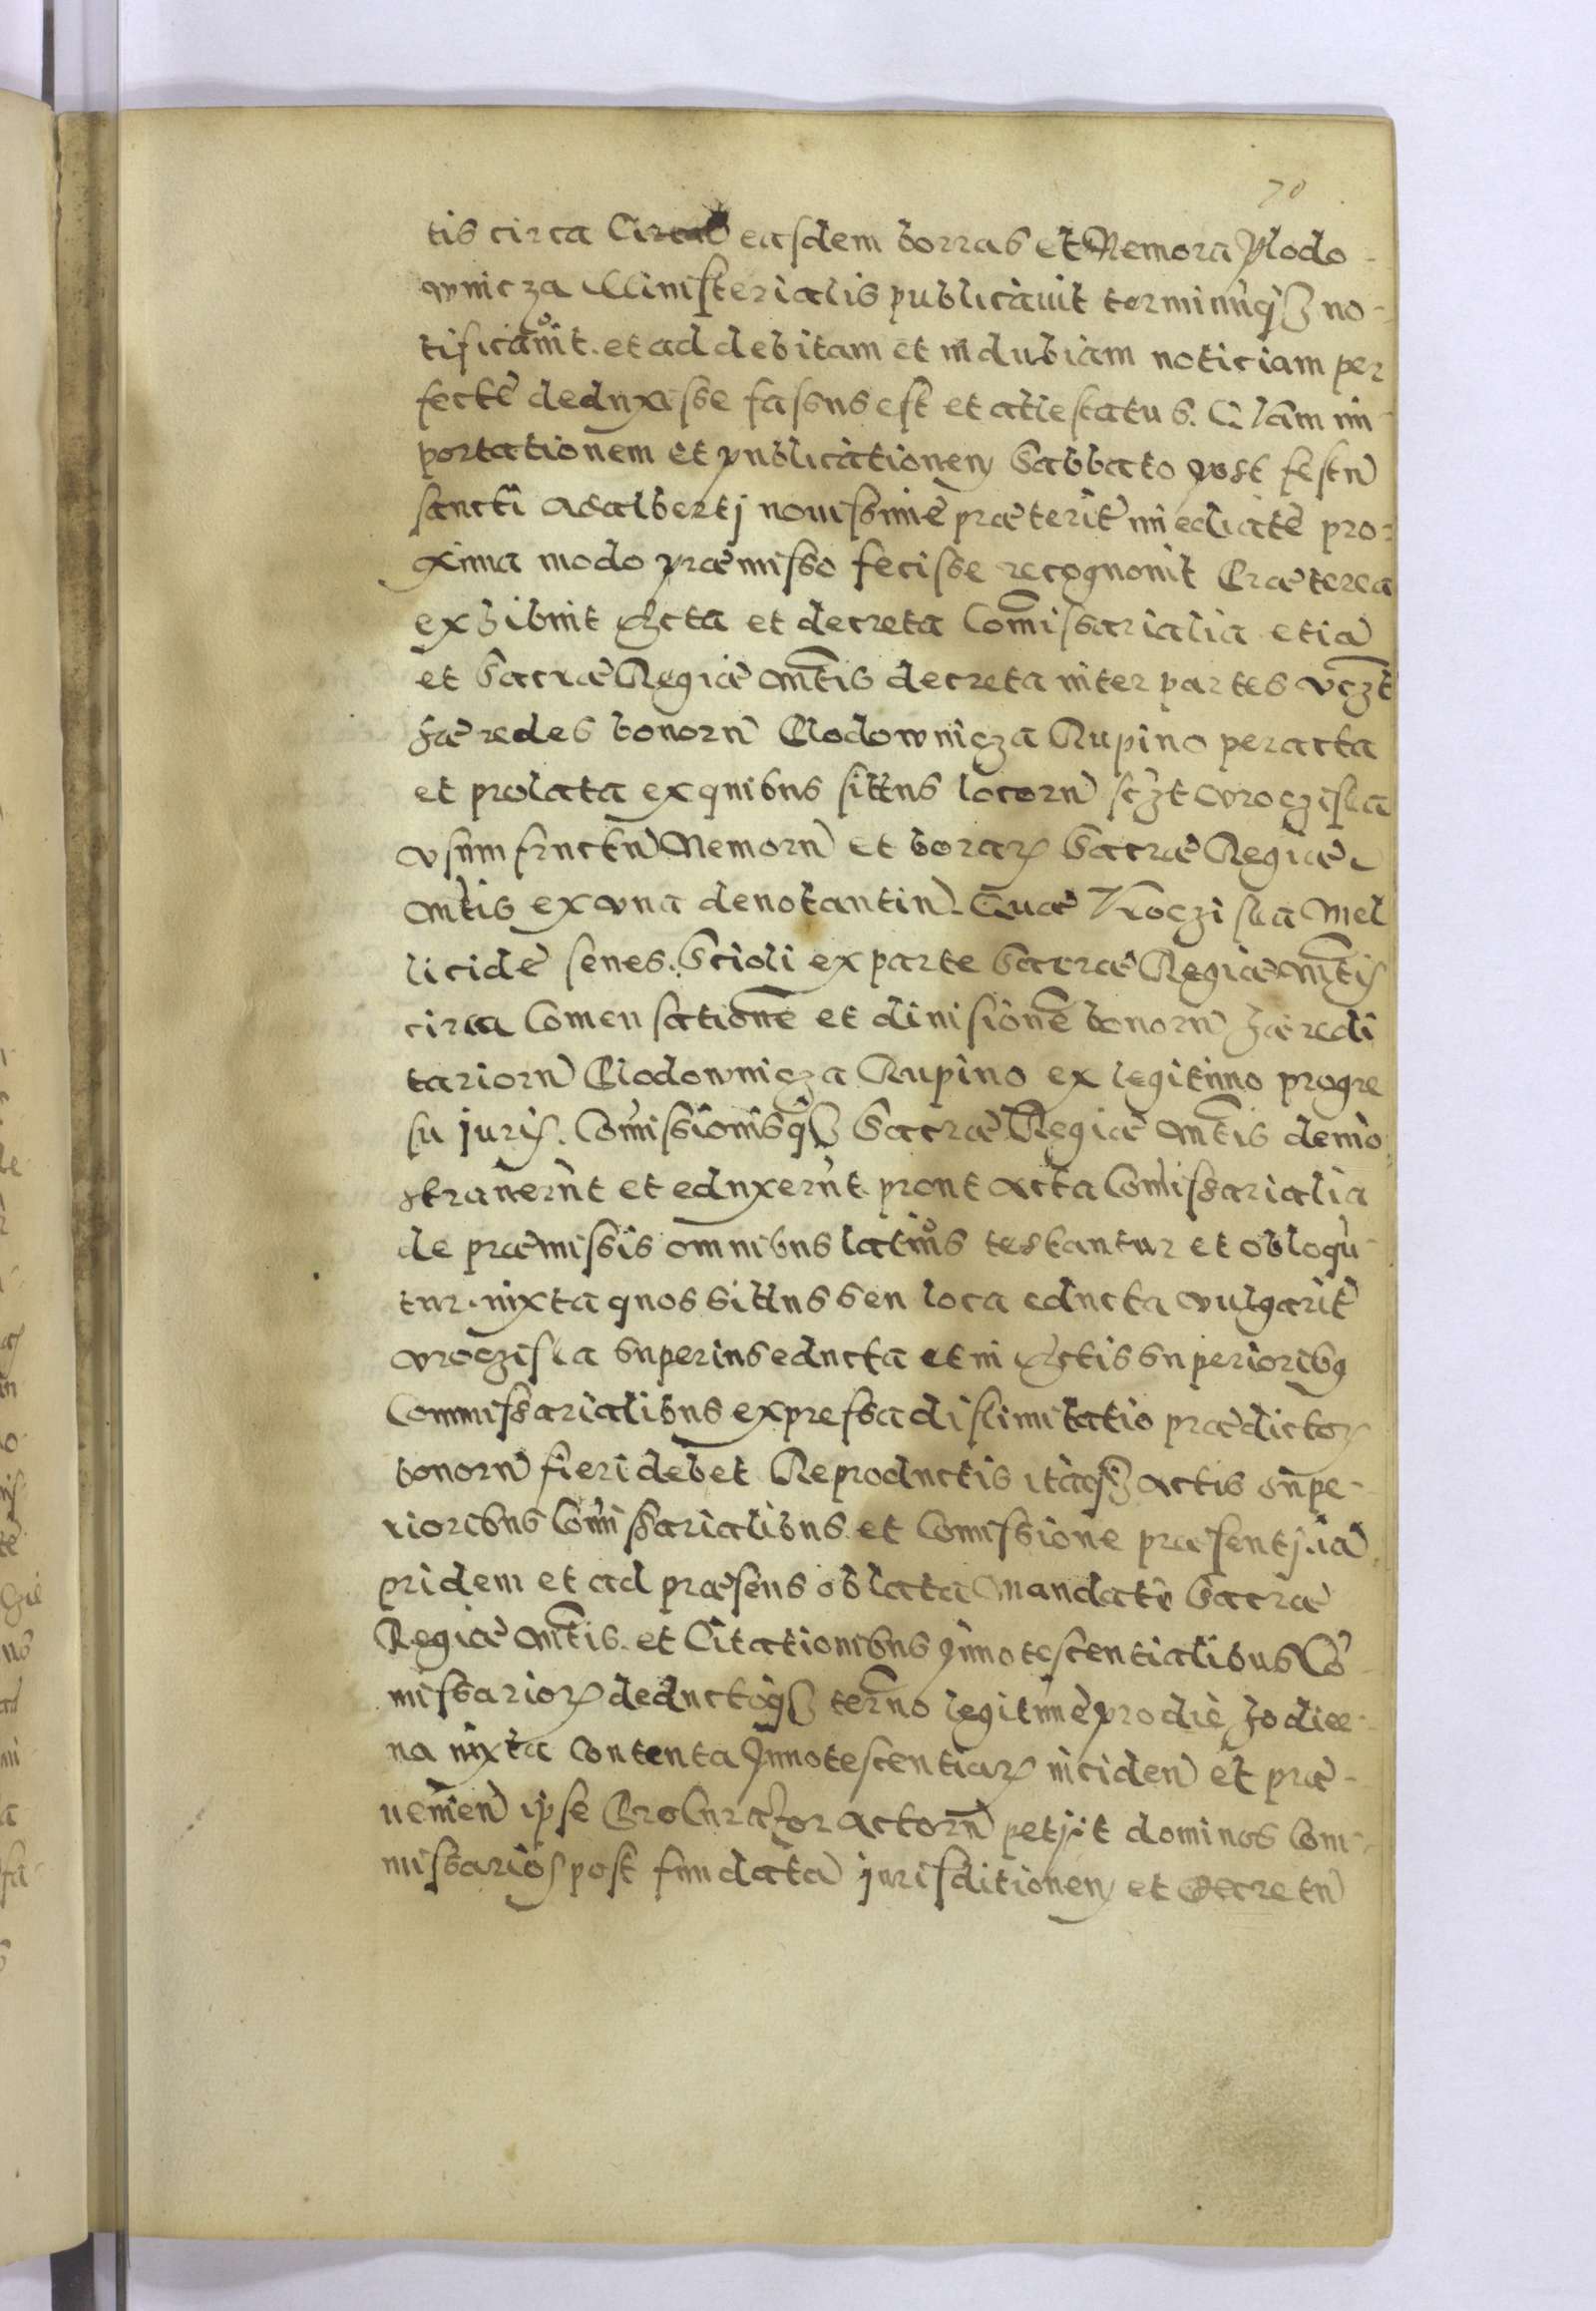 70
tis circa Circa easdem borras et Nemora Plodo-
wnicza Ministerialis publicàuit terminũq₃ no-
tificauit. et ad debitam et indubiam noticiam per
fectè deduxisse fassus est et attestatus. Q̃lam im-
portationem et publicationem Sabbato post festũ
sancti Adalbertj nouissimè præterit̃ im̃ediatè pro-
xima modo præmisso fecisse recognouit Præterea
exhibuit Acta et decreta Com̃issarialia etiã
et Sacræ Regiæ Mt̃is decreta inter partes vcz̃t
hæredes bonorũ Plodownicza Rupino peracta
et prolata ex quibus sittus locorũ scz̃t vroczisca
vsumfructũ Nemorũ et borar̃ Sacræ Regiæ
Mt̃is ex vna denotantur̃. Quæ Vroczisca Mel
licidæ senes. Scioli ex parte Sacræ Regiæ Mt̃is
circa Comensationẽ et diuisionẽ bonorũ hæredi
tariorũ Plodownicza Rupino ex legitimo progre
su juris. Com̃issionisq₃ Sacræ Regiæ Mt̃is demõ
strauerũt et eduxerũt. prout acta Com̃issarialia
de præmissis omnibus latius testantur et obloqũ-
tur. iuxta quos sittus seu loca educta vulgarit̃
vroczisca superius educta et in Actis superiorib9
Commissarialibus expressa dislimitatio prædictor̃
bonorũ fieri debet Reproductis itaq₃ actis supe-
rioribus Com̃issarialibus et Comissione præsentj iã
pridem et ad præsens oblata Mandatè Sacræ
Regiæ Mt̃is. et Citationibus Jnnotescentialibus Cõ
missarior̃ deductoq₃ term̃no legitimè pro die hodier-
na iuxta Contenta Jnnotescentiar̃ inciden̄ et præ-
uenien̄ ipse Procurator actorũ petijt dominos Com-
missarios post fundatã jurisditionem et decretũ